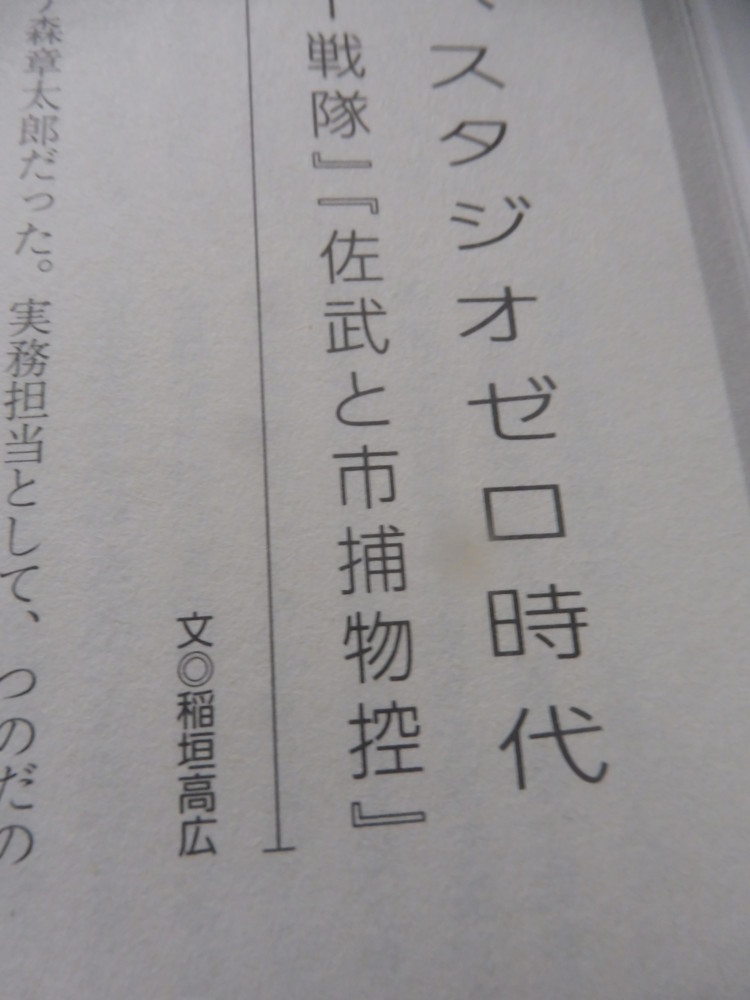 スタジオゼロ時代
ー戦隊』『佐武と市捕物控』
文◎稲垣高広
森章太郎だった。実務担当として、つのだの